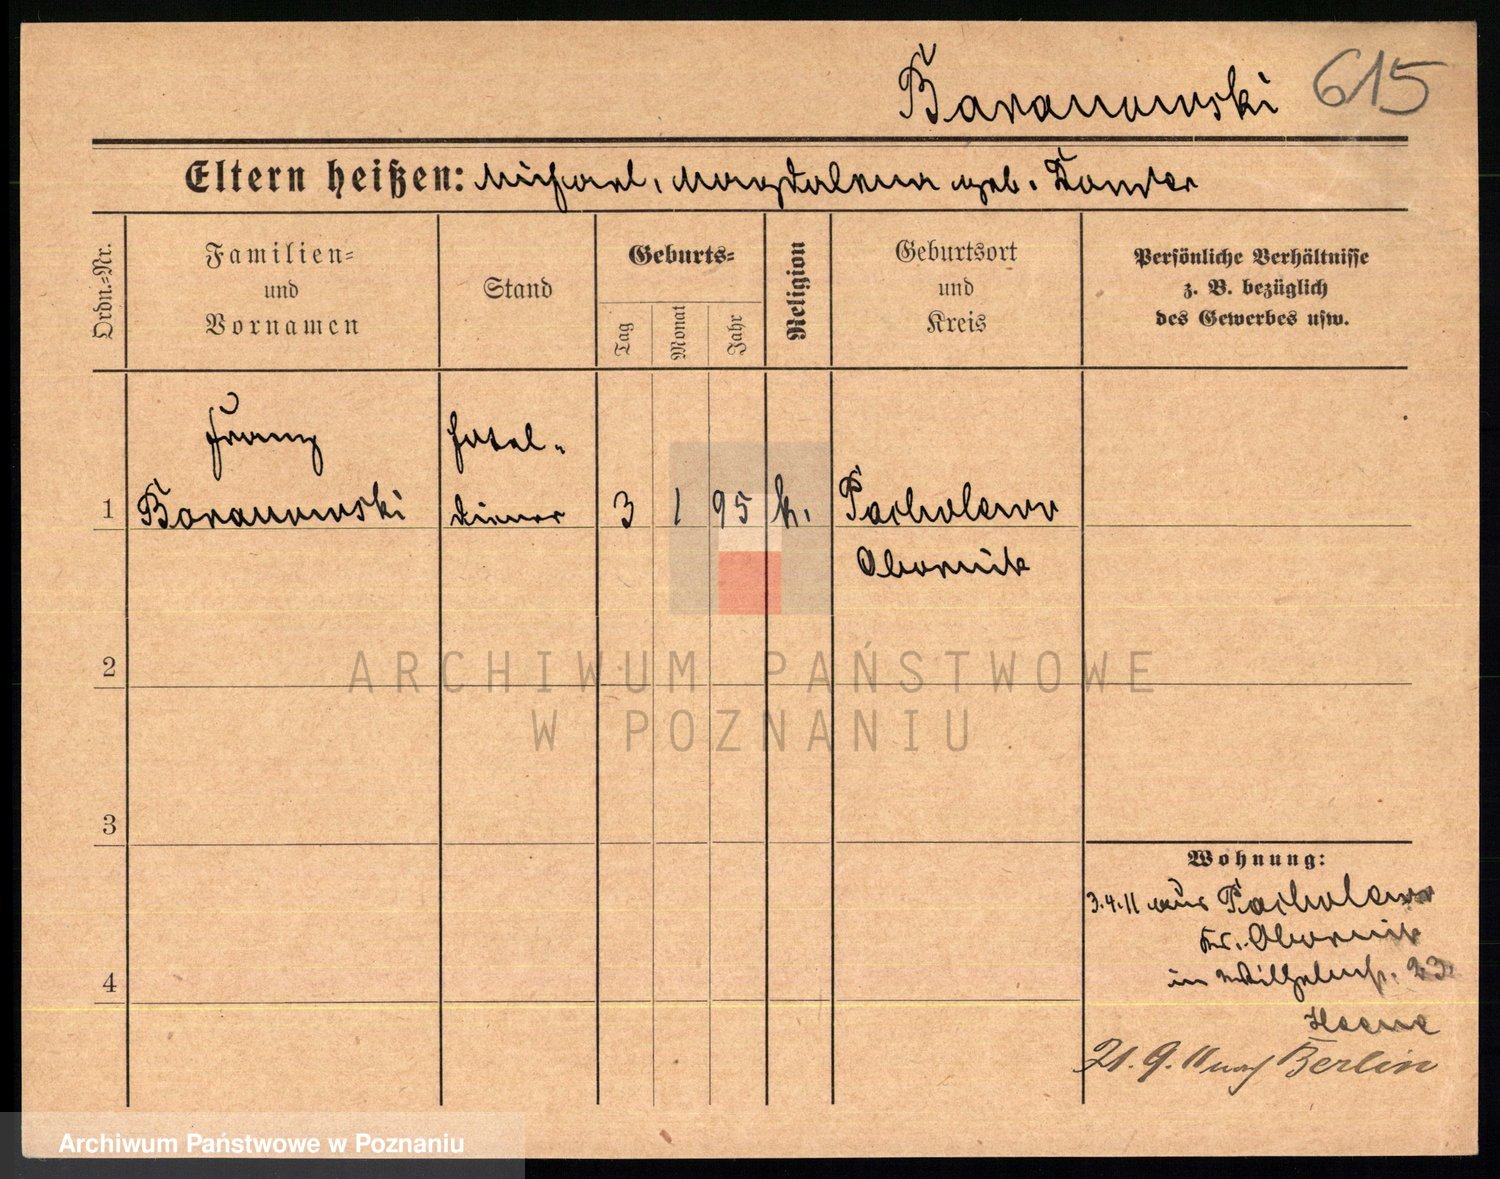 Baranowski 615
Eltern heißen: Michael, Magdalena geb.
Ordn.=Nr.
Familien=
und
Vornamen
Stand
Geburts=
Tag
Monat
Jahr
Religion
Geburtsort
und
Kreis
Persönliche Verhältnisse
z. B. bezüglich
des Gewerbes usw.
Franz
Hotel-
1 Baranowski diener 3 1 95 k. Pacholewo
Obornik
2
3
4
Wohnung:
3.4.11 aus Pacholewo
Kr. Obornik
in Wilhelmpl. 23
21.9.11 nach Berlin
ARCHIWUM PAŃSTWOWE
W POZNANIU
Archiwum Państwowe w Poznaniu